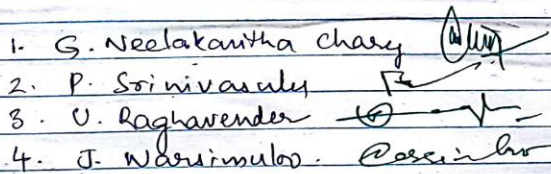 1. G. Neelakantha Chary
2. P. Srinivasulu
3. U. Raghavender
4. J. Warsimuloo.